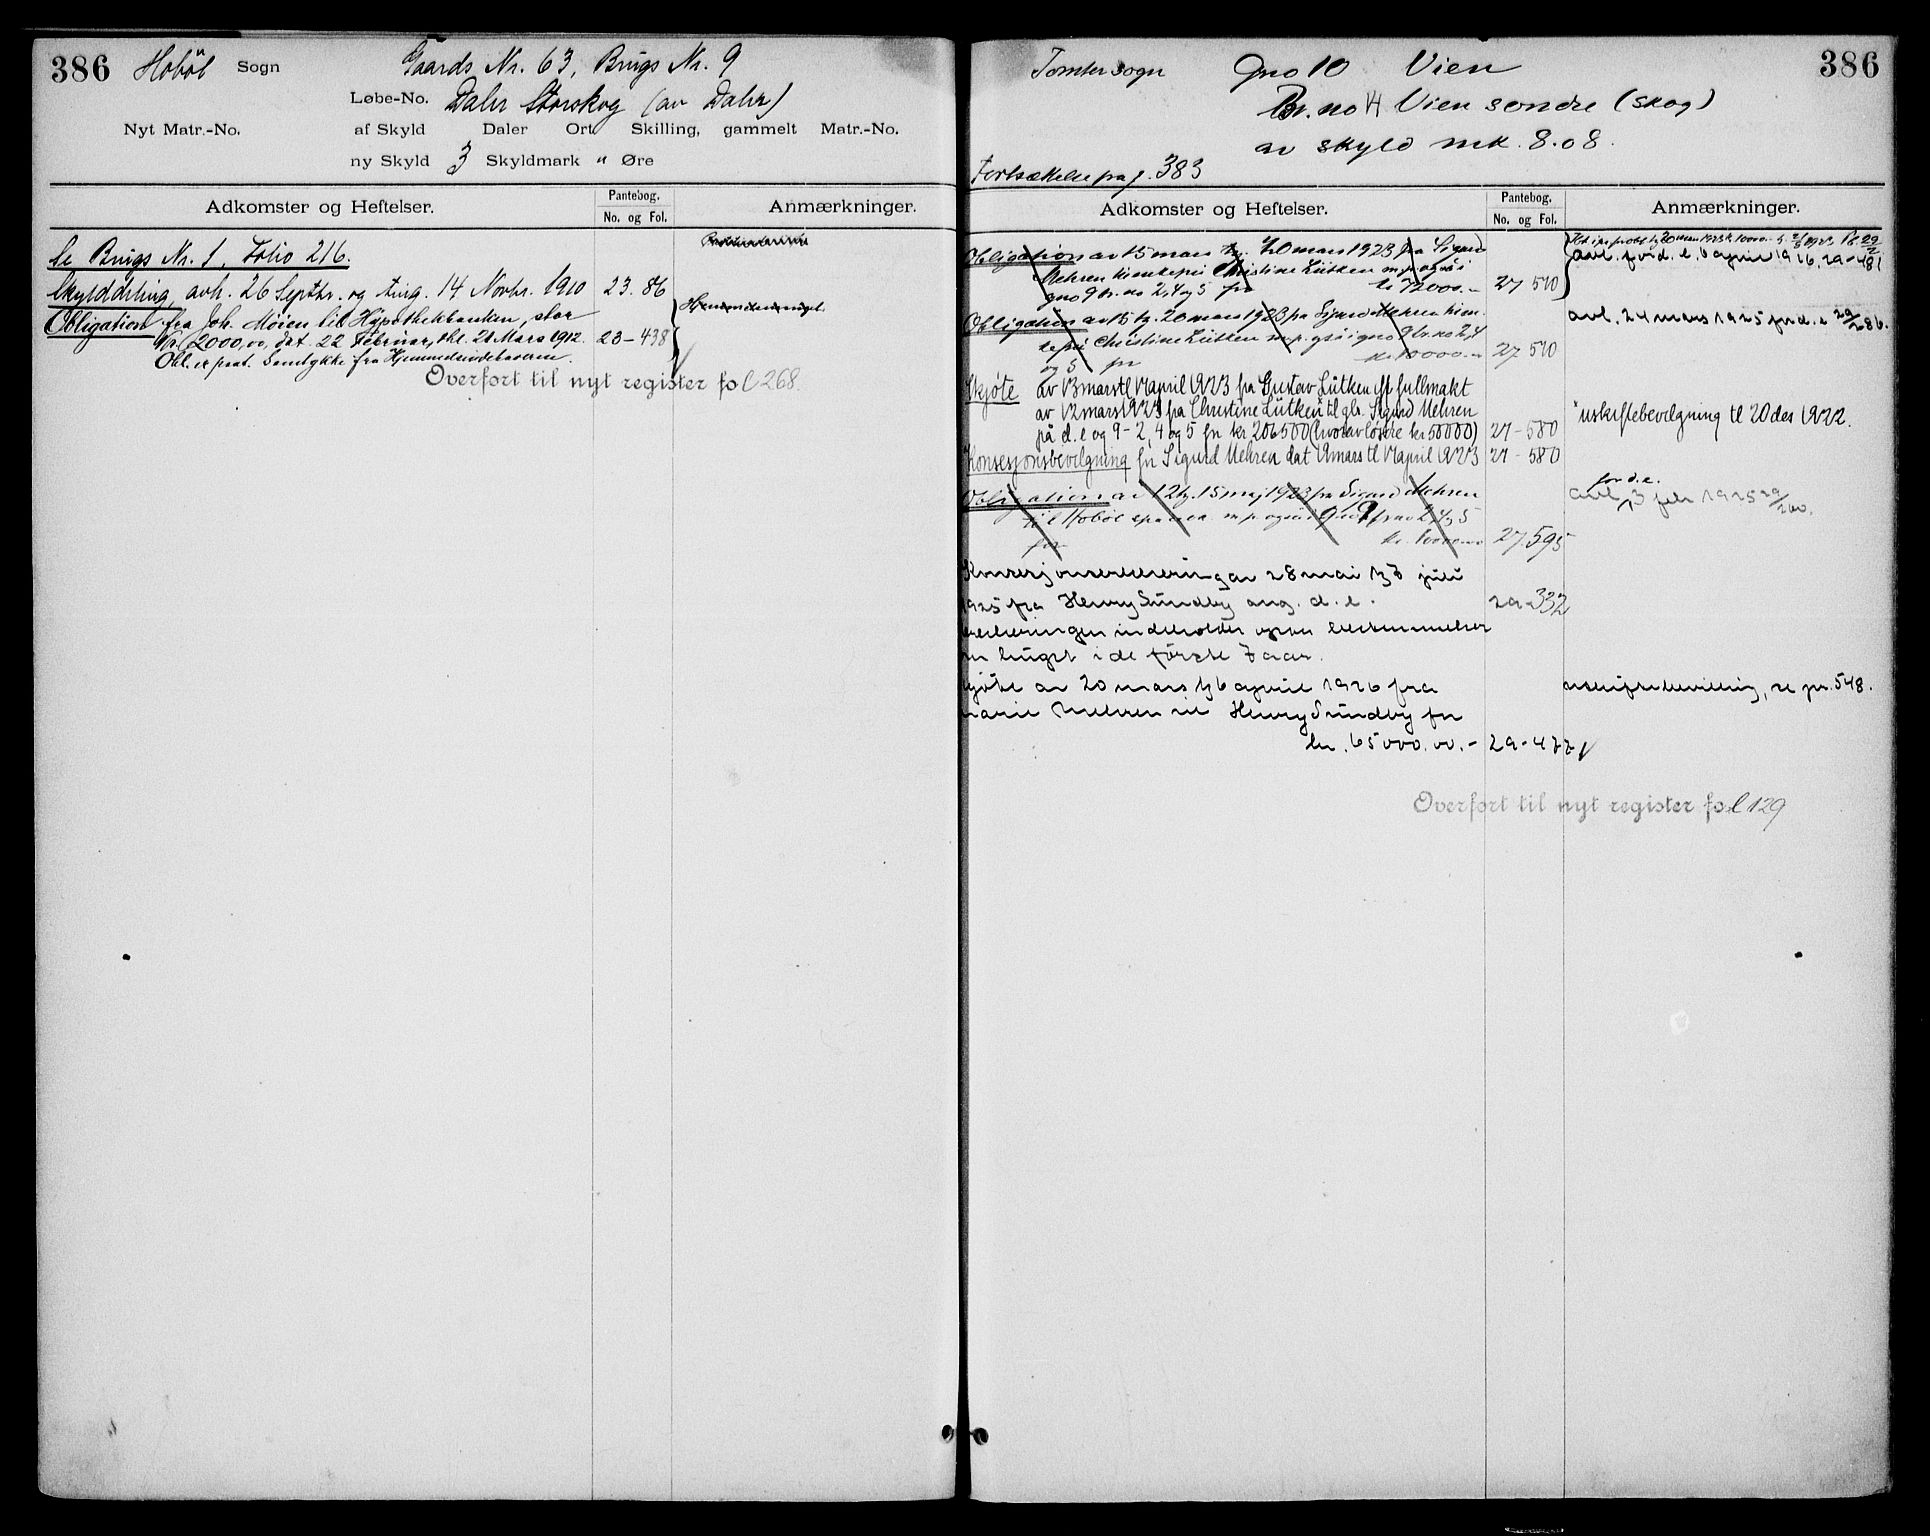 386 Hobøl Sogn Gaards Nr. 63, Brugs Nr. 9
Løbe-No. Daler Storskog (av Daler)
Nyt Matr.-No. af Skyld Daler Ort Skilling, gammelt Matr.-No.
ny Skyld 3 Skyldmark " Øre
Adkomster og Heftelser. Pantebog. No. og Fol. Anmærkninger.
Se Brugs Nr. 1, Folio 216.
Skylddeling, avh. 26 Septbr. og tingl. 14 Novbr. 1910 23. 86
Obligation fra Joh. Möien til Hypothekbanken, stor
Kr. 2000,00, dat. 22 Februar, thl. 21 Mars 1912. 23-438
Obl. er paat. Samtykke fra Hjemmelsindehaveren.
Overført til nyt register fol 268.
Tomter sogn Gno 10 Vien 386
Br. no 14 Vien søndre (skog)
av skyld mk. 8.08.
Fortsættelse fra p. 383
Adkomster og Heftelser. Pantebog. No. og Fol. Anmærkninger.
Obligation av 15 mars tg. 20 mars 1923 fra Sigurd
Mehren til Christine Lütken m.p. også i
gno 9 br. no 2, 4 og 5 for kr 72000.- 27 570
avl. f. vid. d. e. 6 april 1926, 29-481
Obligation av 15 tg. 20 mars 1923 fra Sigurd Mehren
Christine Lütken m.p. også i gno 9 br. no 2, 4
og 5 for kr 10000.- 27 570
avl. 24 mars 1925 for d. e 29/286.
Skjøte av 13 mars tl 17 april 1923 fra Gustav Lütken ifl fullmakt
av 12 mars 1923 fra Christine Lütken til gbr. Sigurd Mehren
på d. e og 9 - 2, 4 og 5 for kr 206500 (hvorav løsøre kr 50000) 27-580
uskiftebevilgning tl 20 des 1922.
Konsesjonsbevilgning for Sigurd Mehren dat 19 mars tl 17 april 1923 27-580
Obligation av 12 tg. 15 maj 1923 fra Sigurd Mehren
til Hobøl sparea m.p. også i gno 9 br no 2, 4 og 5
for 27.595
for d. e.
avl. 3 feb 1925 29/200.
Konsesjonserklæring av 28 mai tg 8 juli
1925 fra Henry Sundby ang. d. e. 29-332
erklæringen indeholder også bestemmelser
om hugst i de første 7 aar.
Skjøte av 20 mars tg 6 april 1926 fra
Marie Mehren til Henry Sundby for
kr. 65000.00.- 29-477
uskiftebevilling, se pr. 548.
Overført til nyt register fol 129